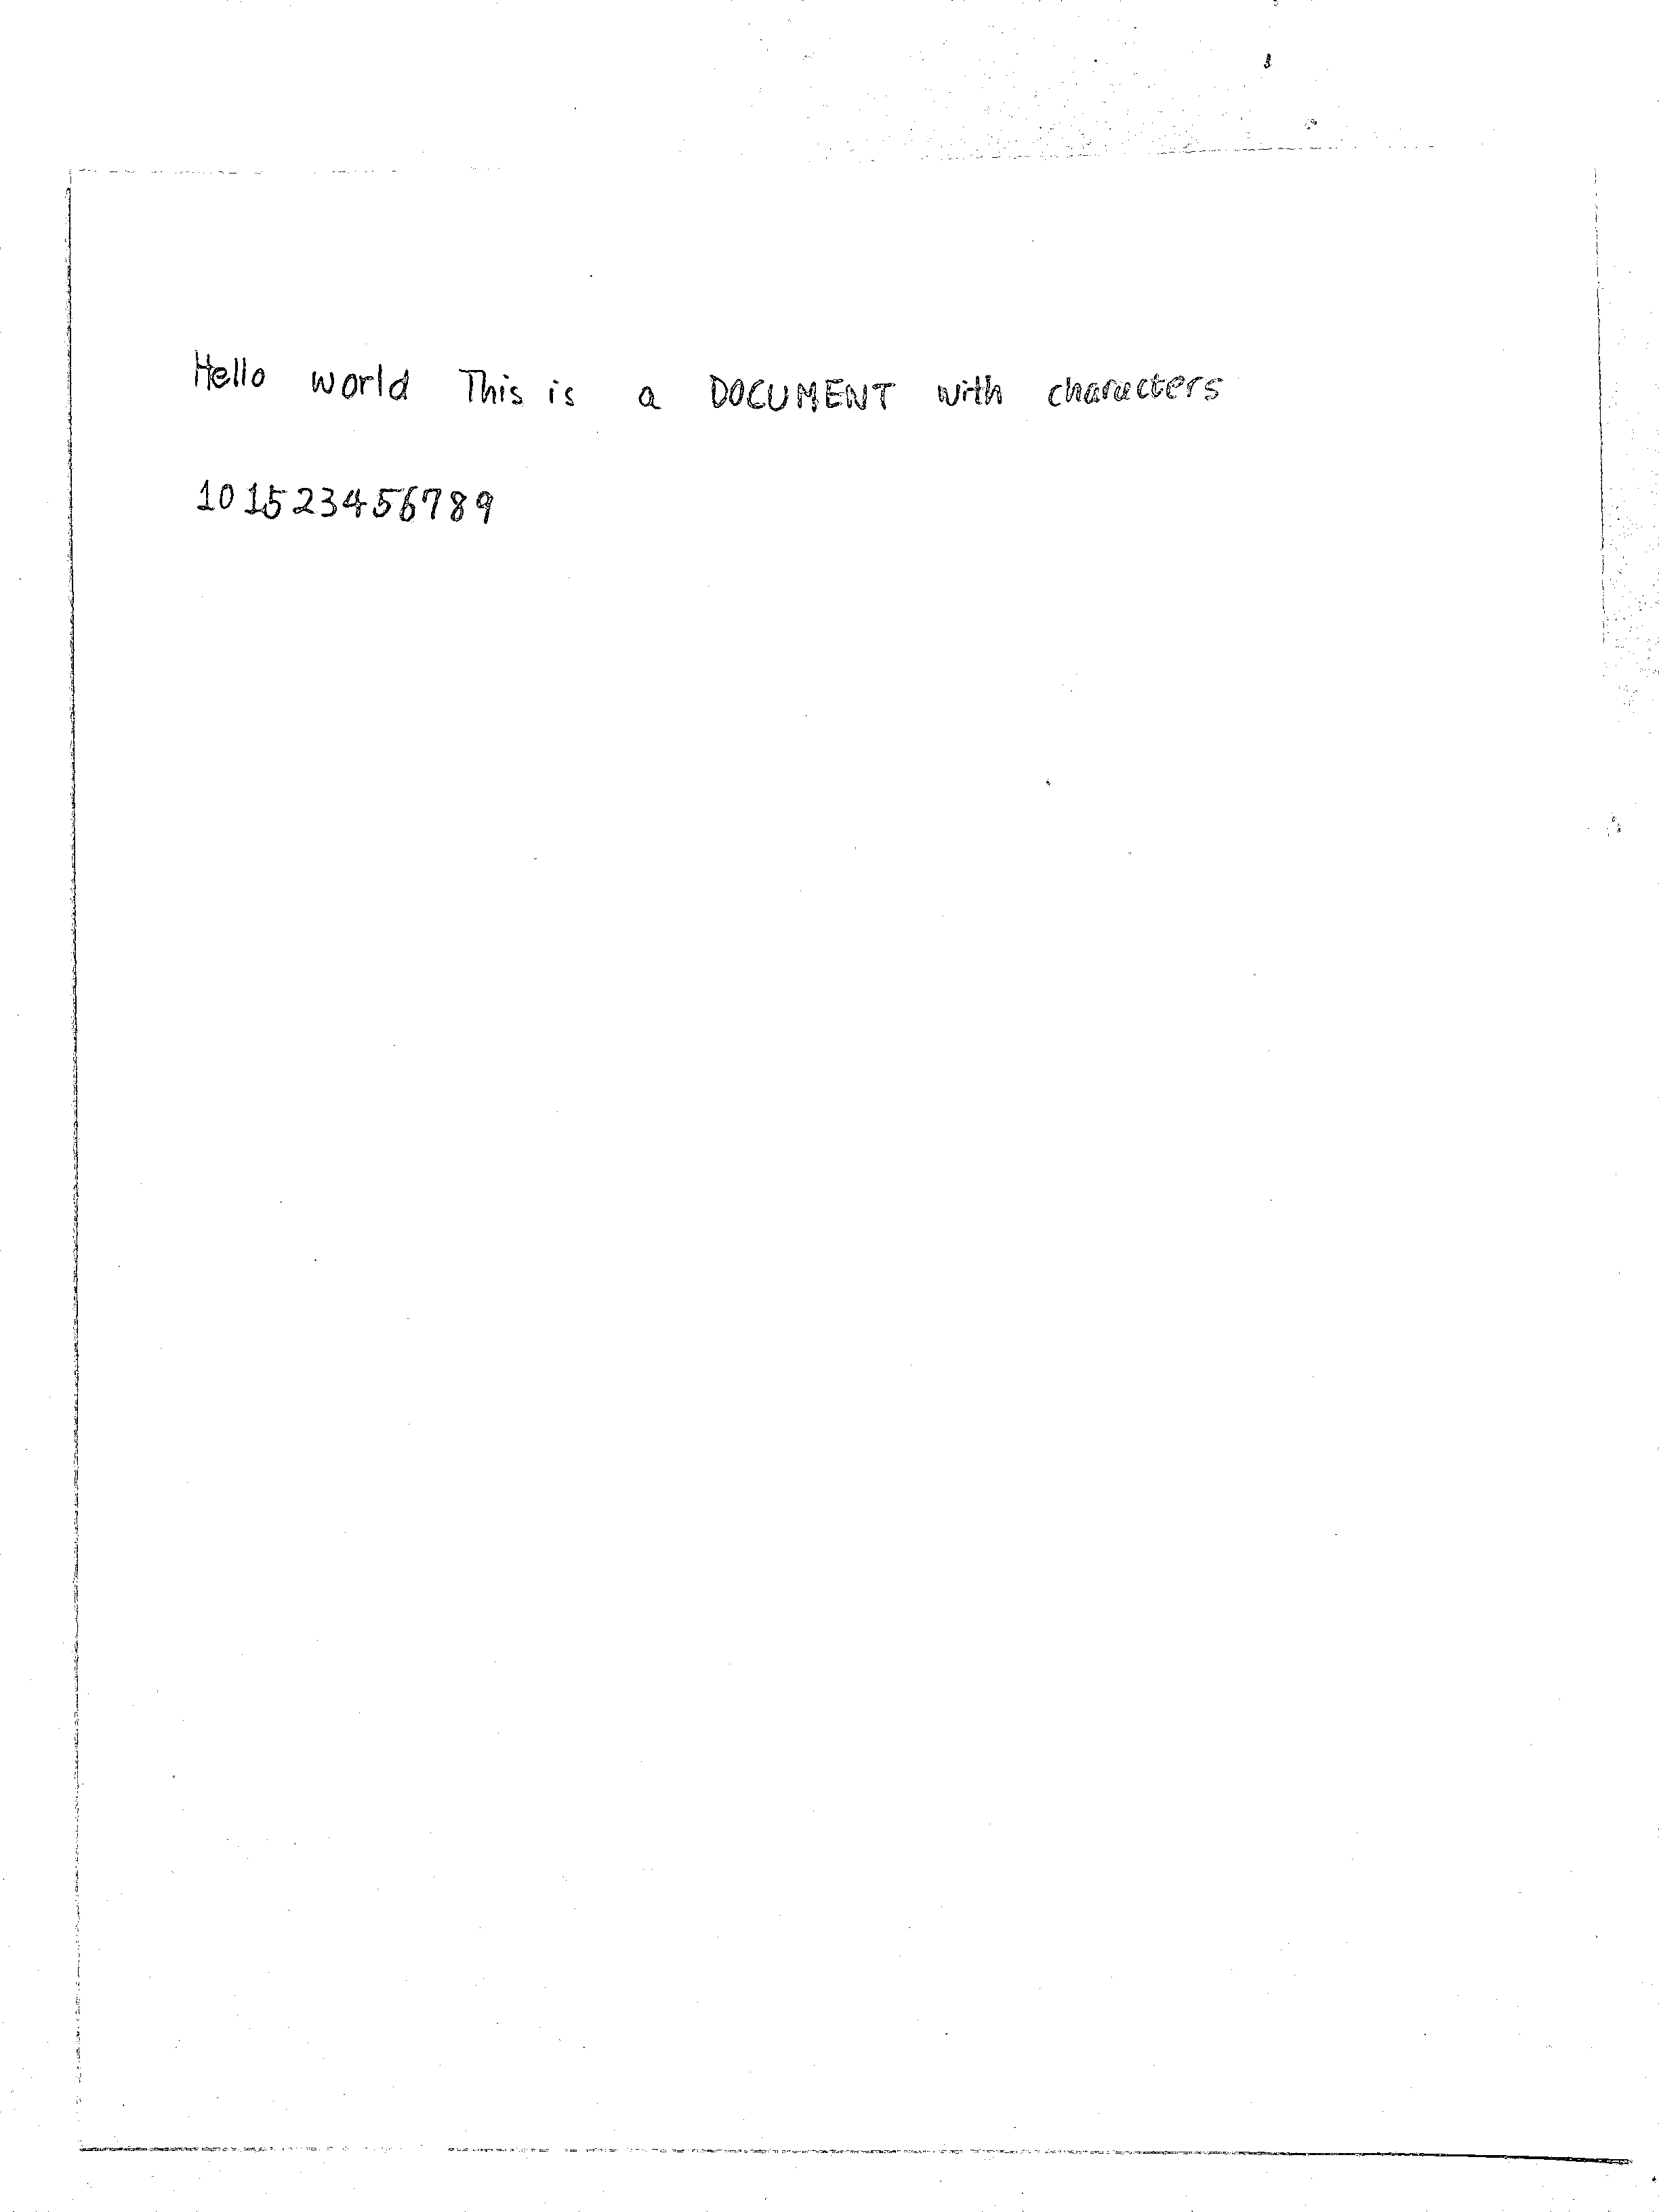 Hello world This is a DOCUMENT with characters
101523456789